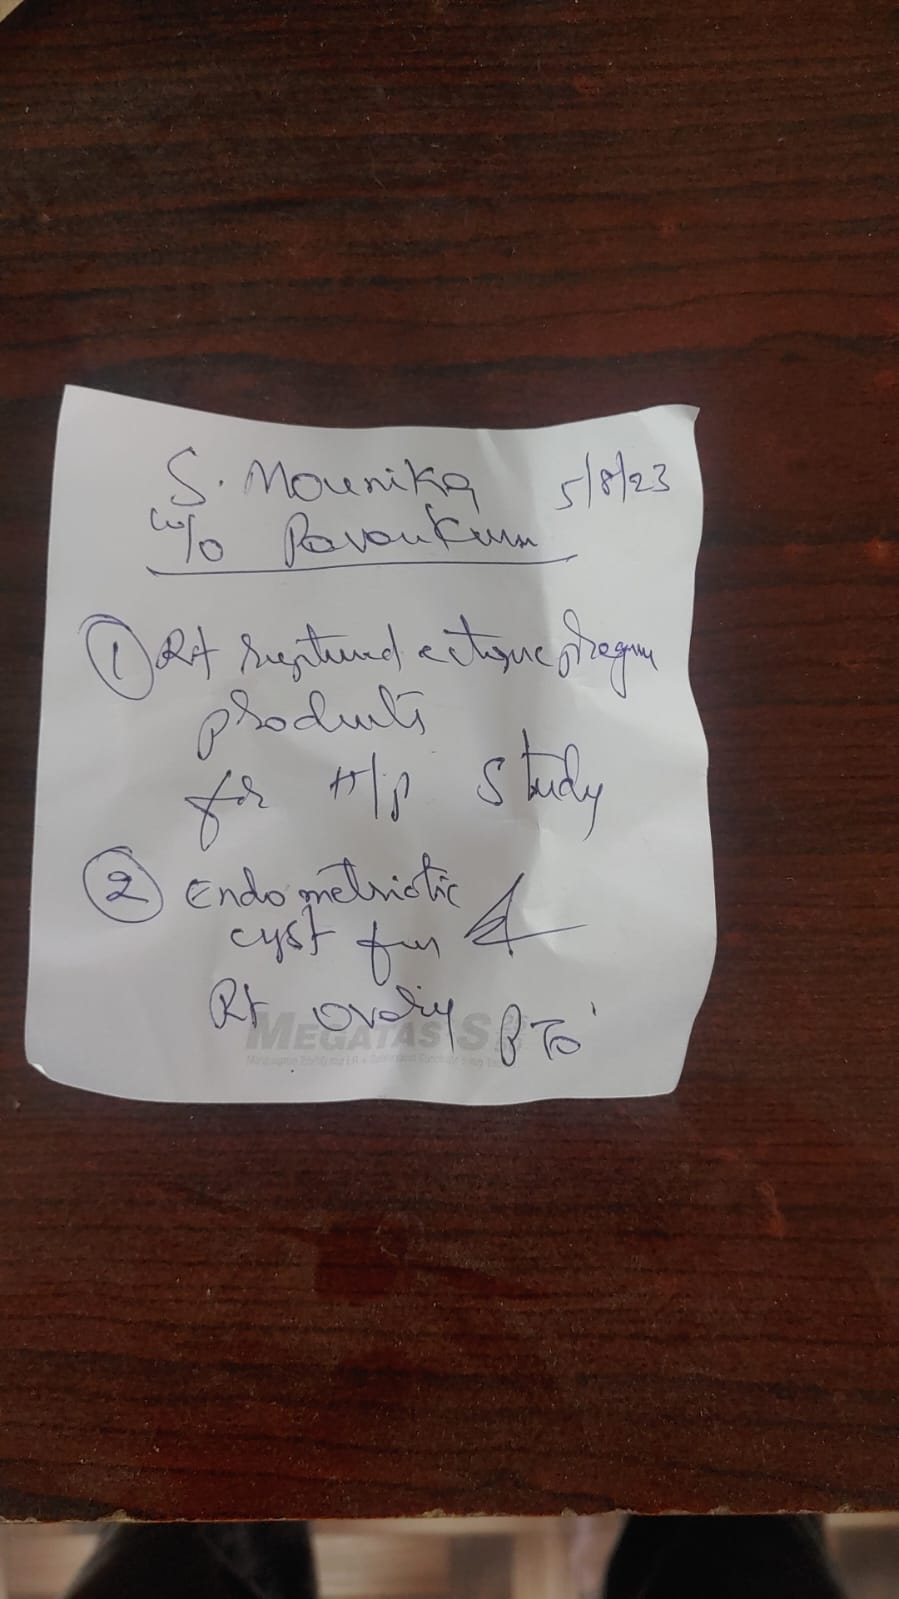 S. Mounika 5/8/23
w/o Pavankum
① Rt ruptured ectopic pregnn
products
for H/p study
② Endometriotic
cyst from
Rt ovary PTO
MEGATAS S